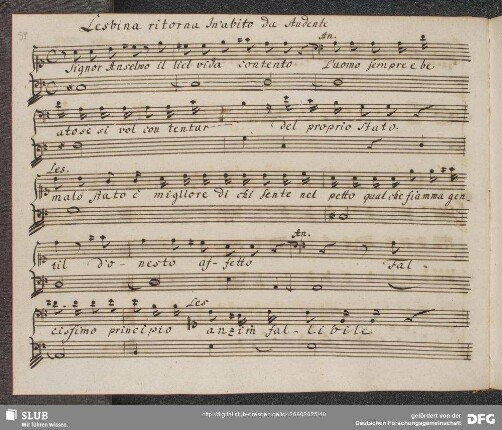 Lesbina ritorna In abito da Studente
59
An.
Signor Anselmo il Ciel vi dia contento. L'uomo sempre e be
ato se si vol contentar del proprio stato.
Les.
malo stato è migliore di chi sente nel petto qualche fiamma gen
An.
til d'onesto affetto Fal
Les
cissimo principio anzi in fal-libile
SLUB
Wir führen Wissen.
gefördert von der
Deutschen Forschungsgemeinschaft
DFG